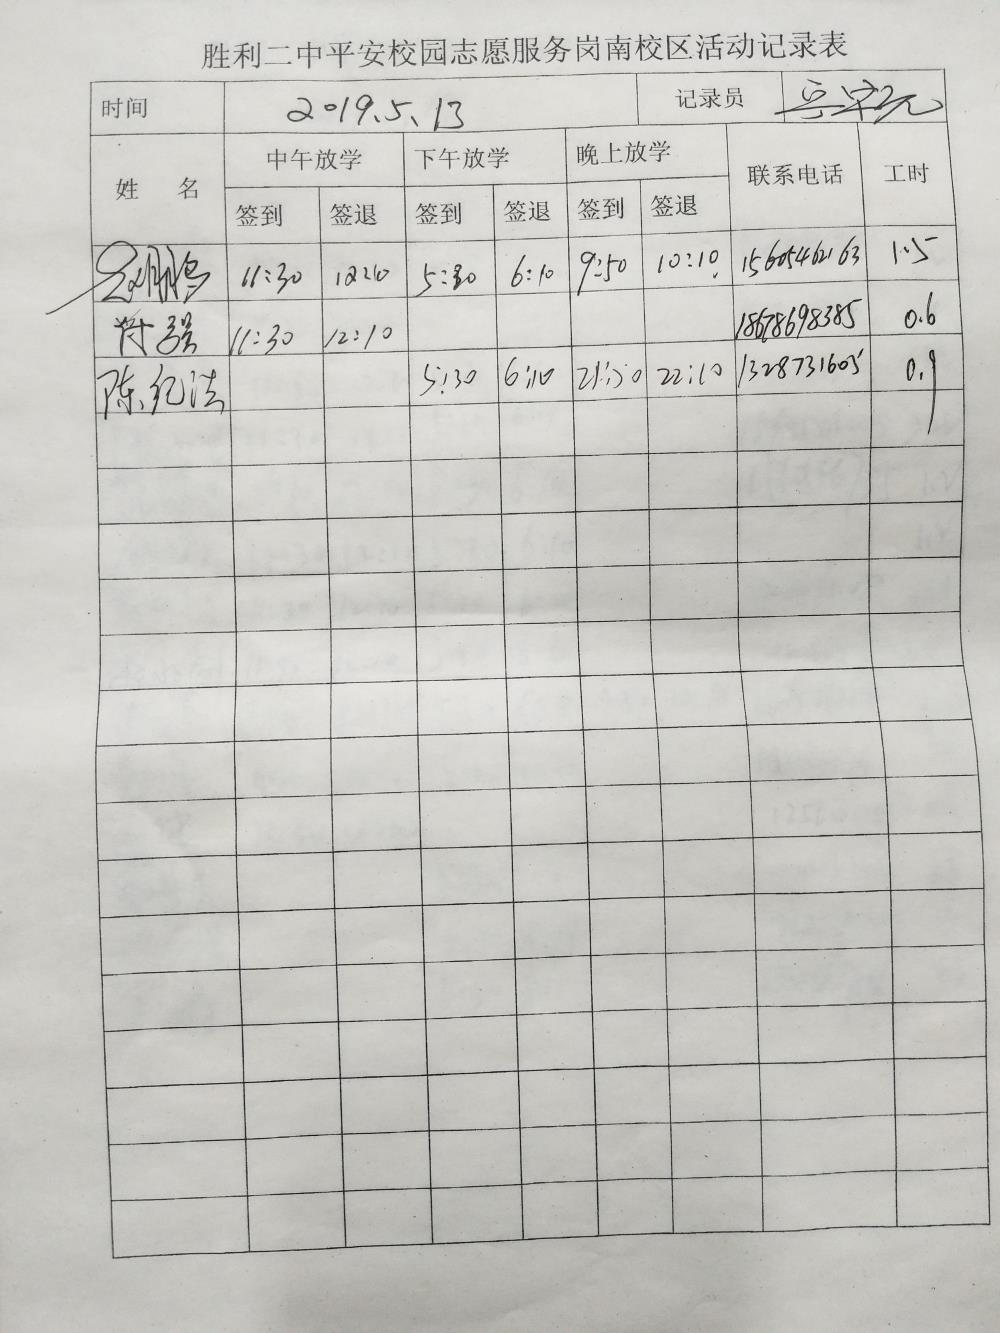 胜利二中平安校园志愿服务岗南校区活动记录表
时间 2019.5.13 记录员
姓 名 中午放学 下午放学 晚上放学 联系电话 工时
签到 签退 签到 签退 签到 签退
11:30 12:10 5:30 6:10 9:50 10:10 15605462163 1.5
11:30 12:10 18678698385 0.6
陈纪法 5:30 6:10 21:50 22:10 1328731605 0.9